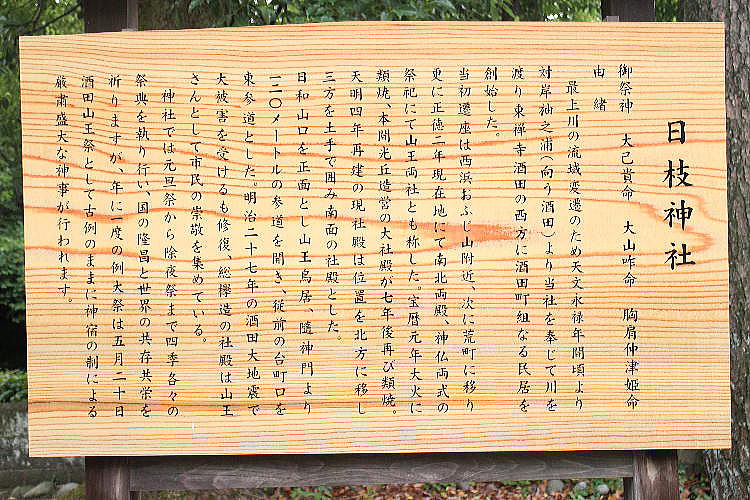 日枝神社
御祭神　大己貴命　大山咋命　胸肩仲津姫命
由緒
最上川の流域変遷のため天文永禄年間頃より
対岸袖之浦(向う酒田)より当社を奉じて川を
渡り東禅寺酒田の西方に酒田町組なる民居を
創始した。
当初遷座は西浜おふじ山附近、次に荒町に移り
更に正徳二年現在地にて南北両殿、神仏両式の
祭祀にて山王両社とも称した。宝暦元年大火に
類焼、本間光丘造営の大社殿が七年後再び類焼。
天明四年再建の現社殿は位置を北方に移し
三方を土手で囲み南面の社殿とした。
日和山口を正面とし山王鳥居、随神門より
一二〇メートルの参道を開き、従前の台町口を
東参道とした。明治二十七年の酒田大地震で
大被害を受けるも修復、総欅造の社殿は山王
さんとして市民の崇敬を集めている。
神社では元旦祭から除夜祭まで四季各々の
祭典を執り行い、国の隆昌と世界の共存共栄を
祈りますが、年に一度の例大祭は五月二十日
酒田山王祭として古例のままに神宿の制による
厳粛盛大な神事が行われます。